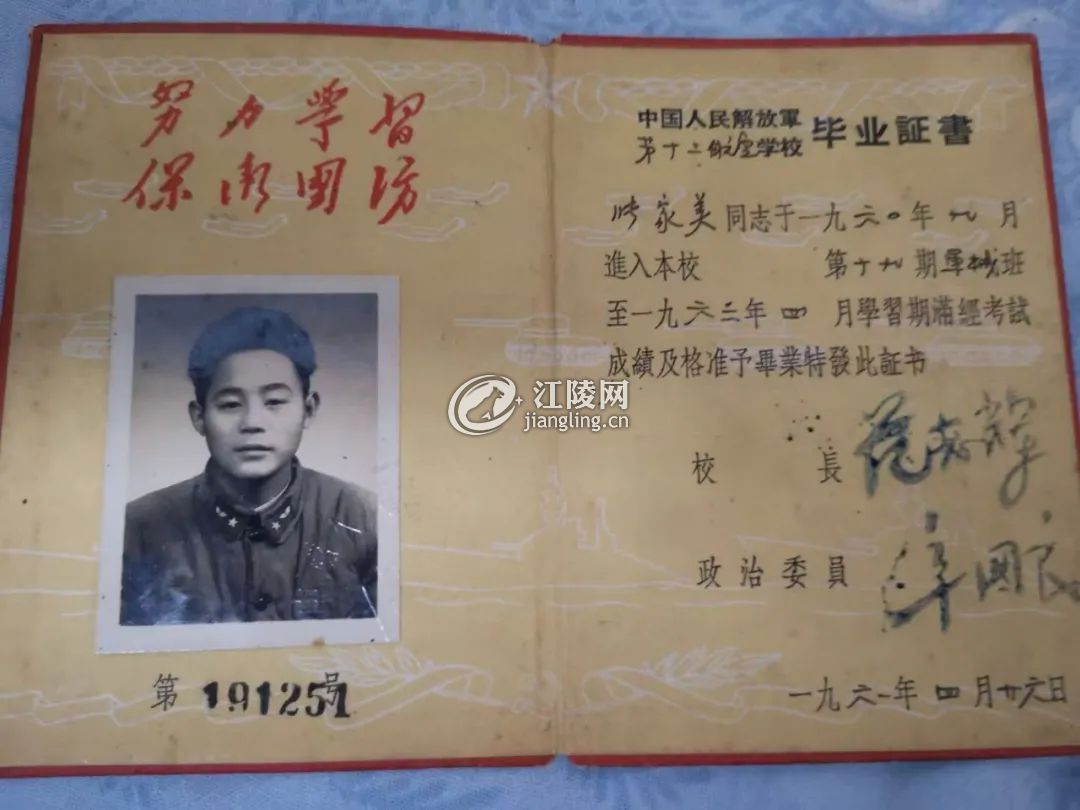 努力學習
保衛國防
第191251号
中国人民解放軍
第十二航空学校
毕业証書
張家美同志于一九六〇年九月
進入本校 第十九期軍械班
至一九六二年四月學習期滿經考試
成績及格准予畢業特發此証书
校 長
政治委員 國
一九六一年四月廿六日
江陵网
jiangling.cn